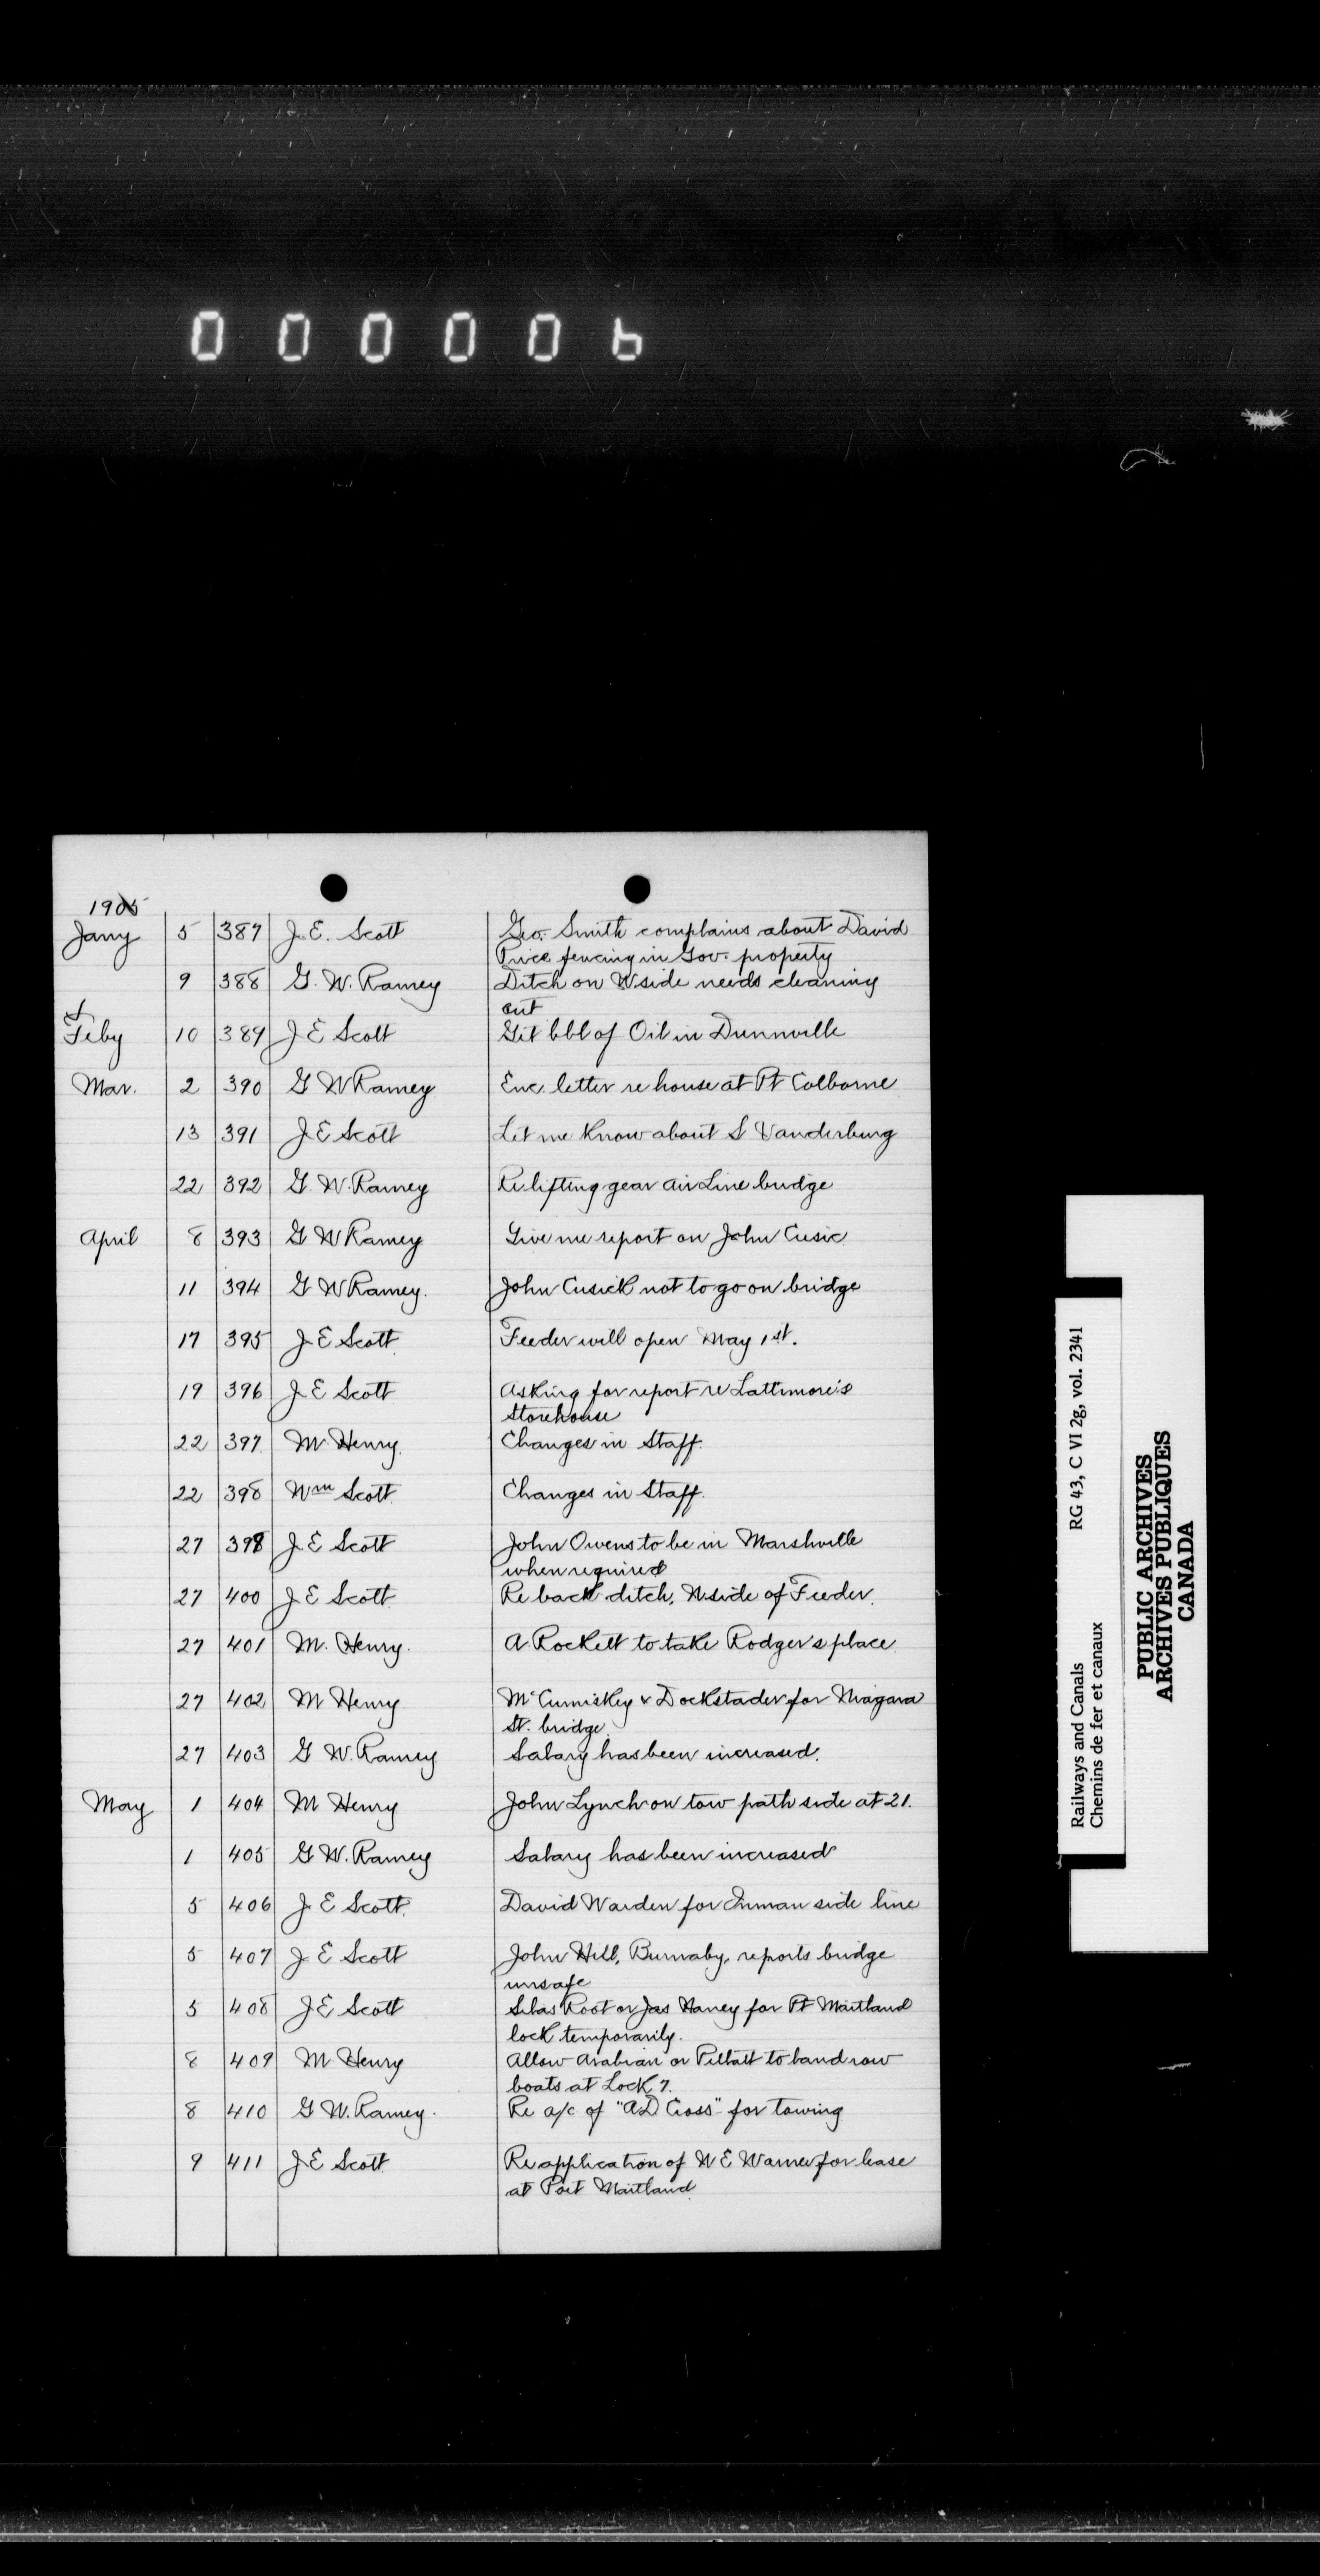 000006
1905
Jany 5 387 J. E. Scott Geo. Smith complains about David
Price fencing in Gov. property
9 388 G. W. Ramey Ditch on W side needs cleaning
out
Feby 10 389 J E Scott Get bbl of Oil in Dunnville
Mar. 2 390 G W Ramey Enc. letter re house at Pt Colborne
13 391 J E Scott Let me know about S Vanderburg
22 392 G. W. Ramey Re lifting gear Air Line bridge
April 8 393 G W Ramey Give me report on John Cusic
11 394 G W Ramey. John Cusick not to go on bridge
17 395 J E Scott Feeder will open May 1st.
19 396 J E Scott Asking for report re Lattimore's
Storehouse
22 397 M Henry Changes in Staff.
22 398 Wm Scott Changes in Staff.
27 399 J E Scott John Owens to be in Marshville
when required
27 400 J E Scott Re back ditch, N side of Feeder.
27 401 M. Henry. A Rockett to take Rodger's place
27 402 M Henry McCumiskey & Dockstader for Niagara
St. bridge
27 403 G W. Ramey Salary has been increased.
May 1 404 M Henry John Lynch on tow path side at 21.
1 405 G W. Ramey Salary has been increased
5 406 J E Scott David Warden for Inman side line
5 407 J E Scott John Hill, Burnaby, reports bridge
unsafe
5 408 J E Scott Silas Root or Jas Haney for Pt Maitland
lock temporarily.
8 409 M Henry Allow Arabian or to land row
boats at Lock 7.
8 410 G W. Ramey. Re a/c of "A D Cross" for towing
9 411 J E Scott Re application of W E Warner for lease
at Port Maitland
Railways and Canals RG 43, C VI 2g, vol. 2341
Chemins de fer et canaux
PUBLIC ARCHIVES
ARCHIVES PUBLIQUES
CANADA